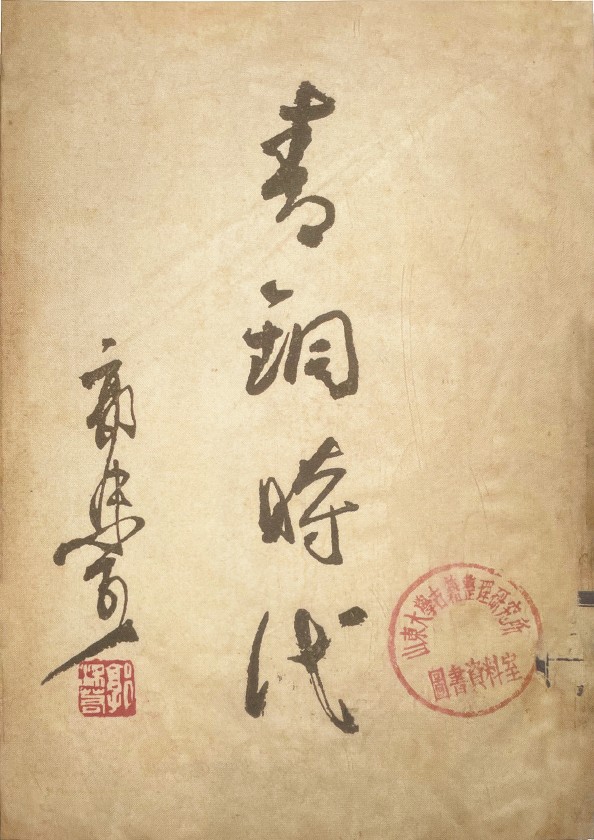 青銅時代
郭沫若
郭沫若
山東大學古籍整理研究所
圖書資料室